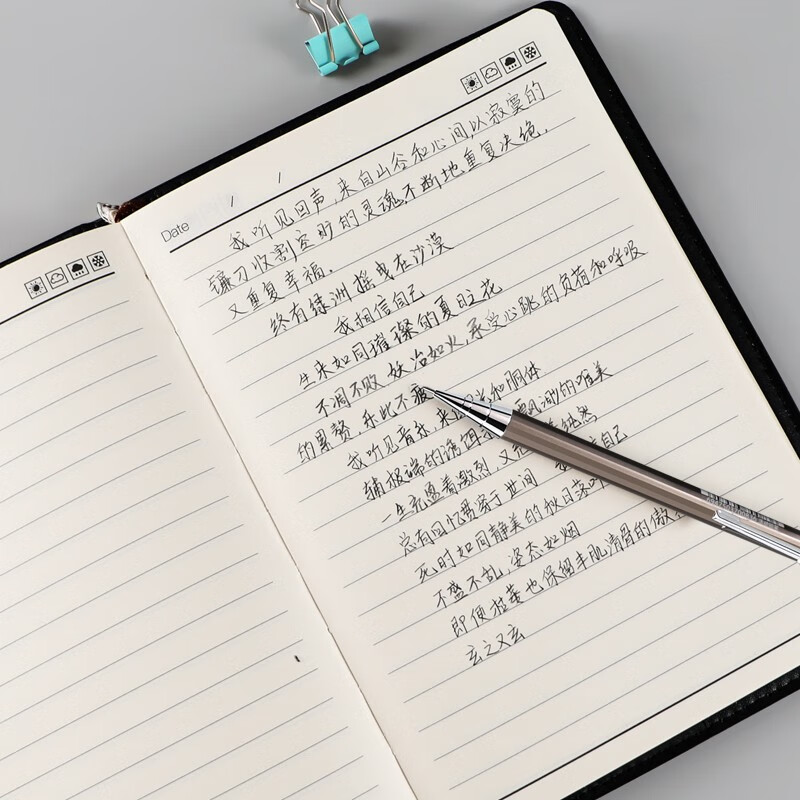 Date / /
我听见回声,来自山谷和心间,以寂寞的
镰刀收割空旷的灵魂,不断地重复决绝,
又重复幸福。
终有绿洲摇曳在沙漠
我相信自己
生来如同璀璨的夏日之花
不凋不败,妖冶如火,承受心跳的负荷和呼吸
的累赘,乐此不疲
我听见音乐,来 和胴体
辅极端的诱饵 飘渺的唯美
一生充盈着激烈,又 纯然
总有回忆贯穿于世间 自己
死时如同静美的秋日落叶
不盛不乱,姿态如烟
即便枯萎也保留丰肌清骨的傲
玄之又玄